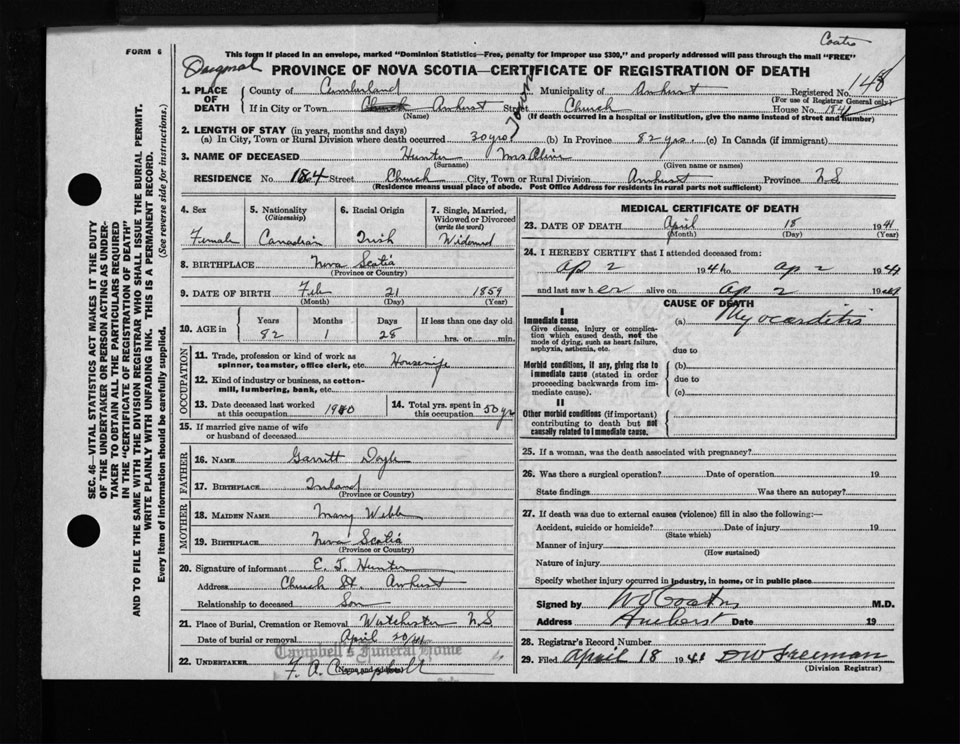 Coats
FORM 6
This form if placed in an envelope, marked "Dominion Statistics—Free, penalty for improper use $300," and properly addressed will pass through the mail "FREE"
PROVINCE OF NOVA SCOTIA—CERTIFICATE OF REGISTRATION OF DEATH
148
1. PLACE OF DEATH
County of Cumberland Municipality of Amherst Registered No.
(For use of Registrar General only)
If in City or Town Church Amherst Street Church House No. 184
(Name) (If death occurred in a hospital or institution, give the name instead of street and number)
Town
2. LENGTH OF STAY (in years, months and days)
(a) In City, Town or Rural Division where death occurred 30 yrs (b) In Province 82 yrs. (c) In Canada (if immigrant)
3. NAME OF DECEASED Hunter Mrs Olive
(Surname) (Given name or names)
RESIDENCE No. 184 Street Church City, Town or Rural Division Amherst Province N.S
(Residence means usual place of abode. Post Office Address for residents in rural parts not sufficient)
4. Sex
Female
5. Nationality
(Citizenship)
Canadian
6. Racial Origin
Irish
7. Single, Married, Widowed or Divorced
(write the word)
Widowed
8. BIRTHPLACE Nova Scotia
(Province or Country)
9. DATE OF BIRTH Feb 21 1859
(Month) (Day) (Year)
10. AGE in
Years Months Days If less than one day old
82 1 28 hrs. or min.
OCCUPATION
11. Trade, profession or kind of work as spinner, teamster, office clerk, etc. Housewife
12. Kind of industry or business, as cotton-mill, lumbering, bank, etc.
13. Date deceased last worked at this occupation 1940
14. Total yrs. spent in this occupation 50 yr
15. If married give name of wife or husband of deceased
FATHER
16. NAME Garritt Doyle
17. BIRTHPLACE Ireland
(Province or Country)
MOTHER
18. MAIDEN NAME Mary Webb
19. BIRTHPLACE Nova Scotia
(Province or Country)
20. Signature of informant E. J. Hunter
Address Church St. Amherst
Relationship to deceased Son
21. Place of Burial, Cremation or Removal Westchester N.S
Date of burial or removal April 20/41
Campbell's Funeral Home
22. UNDERTAKER F. A. Campbell
(Name and address)
MEDICAL CERTIFICATE OF DEATH
23. DATE OF DEATH April 18 1941
(Month) (Day) (Year)
24. I HEREBY CERTIFY that I attended deceased from:
Ap 2 194 to ap 2 1941
and last saw her alive on Ap 2 19
CAUSE OF DEATH
I
Immediate cause
Give disease, injury or complication which caused death, not the mode of dying, such as heart failure, asphyxia, asthenia, etc.
(a) Myocarditis
due to
Morbid conditions, if any, giving rise to immediate cause (stated in order proceeding backwards from immediate cause).
(b)
due to
(c)
II
Other morbid conditions (if important) contributing to death but not causally related to immediate cause.
25. If a woman, was the death associated with pregnancy?
26. Was there a surgical operation? Date of operation 19
State findings Was there an autopsy?
27. If death was due to external causes (violence) fill in also the following:—
Accident, suicide or homicide? Date of injury 19
(State which)
Manner of injury
(How sustained)
Nature of injury
Specify whether injury occurred in industry, in home, or in public place
Signed by Coates M.D.
Address Amherst Date 19
28. Registrar's Record Number
29. Filed April 18 1941 D W Freeman
(Division Registrar)
SEC. 46—VITAL STATISTICS ACT MAKES IT THE DUTY
OF THE UNDERTAKER OR PERSON ACTING AS UNDER-
TAKER TO OBTAIN ALL THE PARTICULARS REQUIRED
IN THE "CERTIFICATE OF REGISTRATION OF DEATH"
AND TO FILE THE SAME WITH THE DIVISION REGISTRAR WHO SHALL ISSUE THE BURIAL PERMIT.
WRITE PLAINLY WITH UNFADING INK. THIS IS A PERMANENT RECORD.
Every item of information should be carefully supplied. (See reverse side for instructions.)